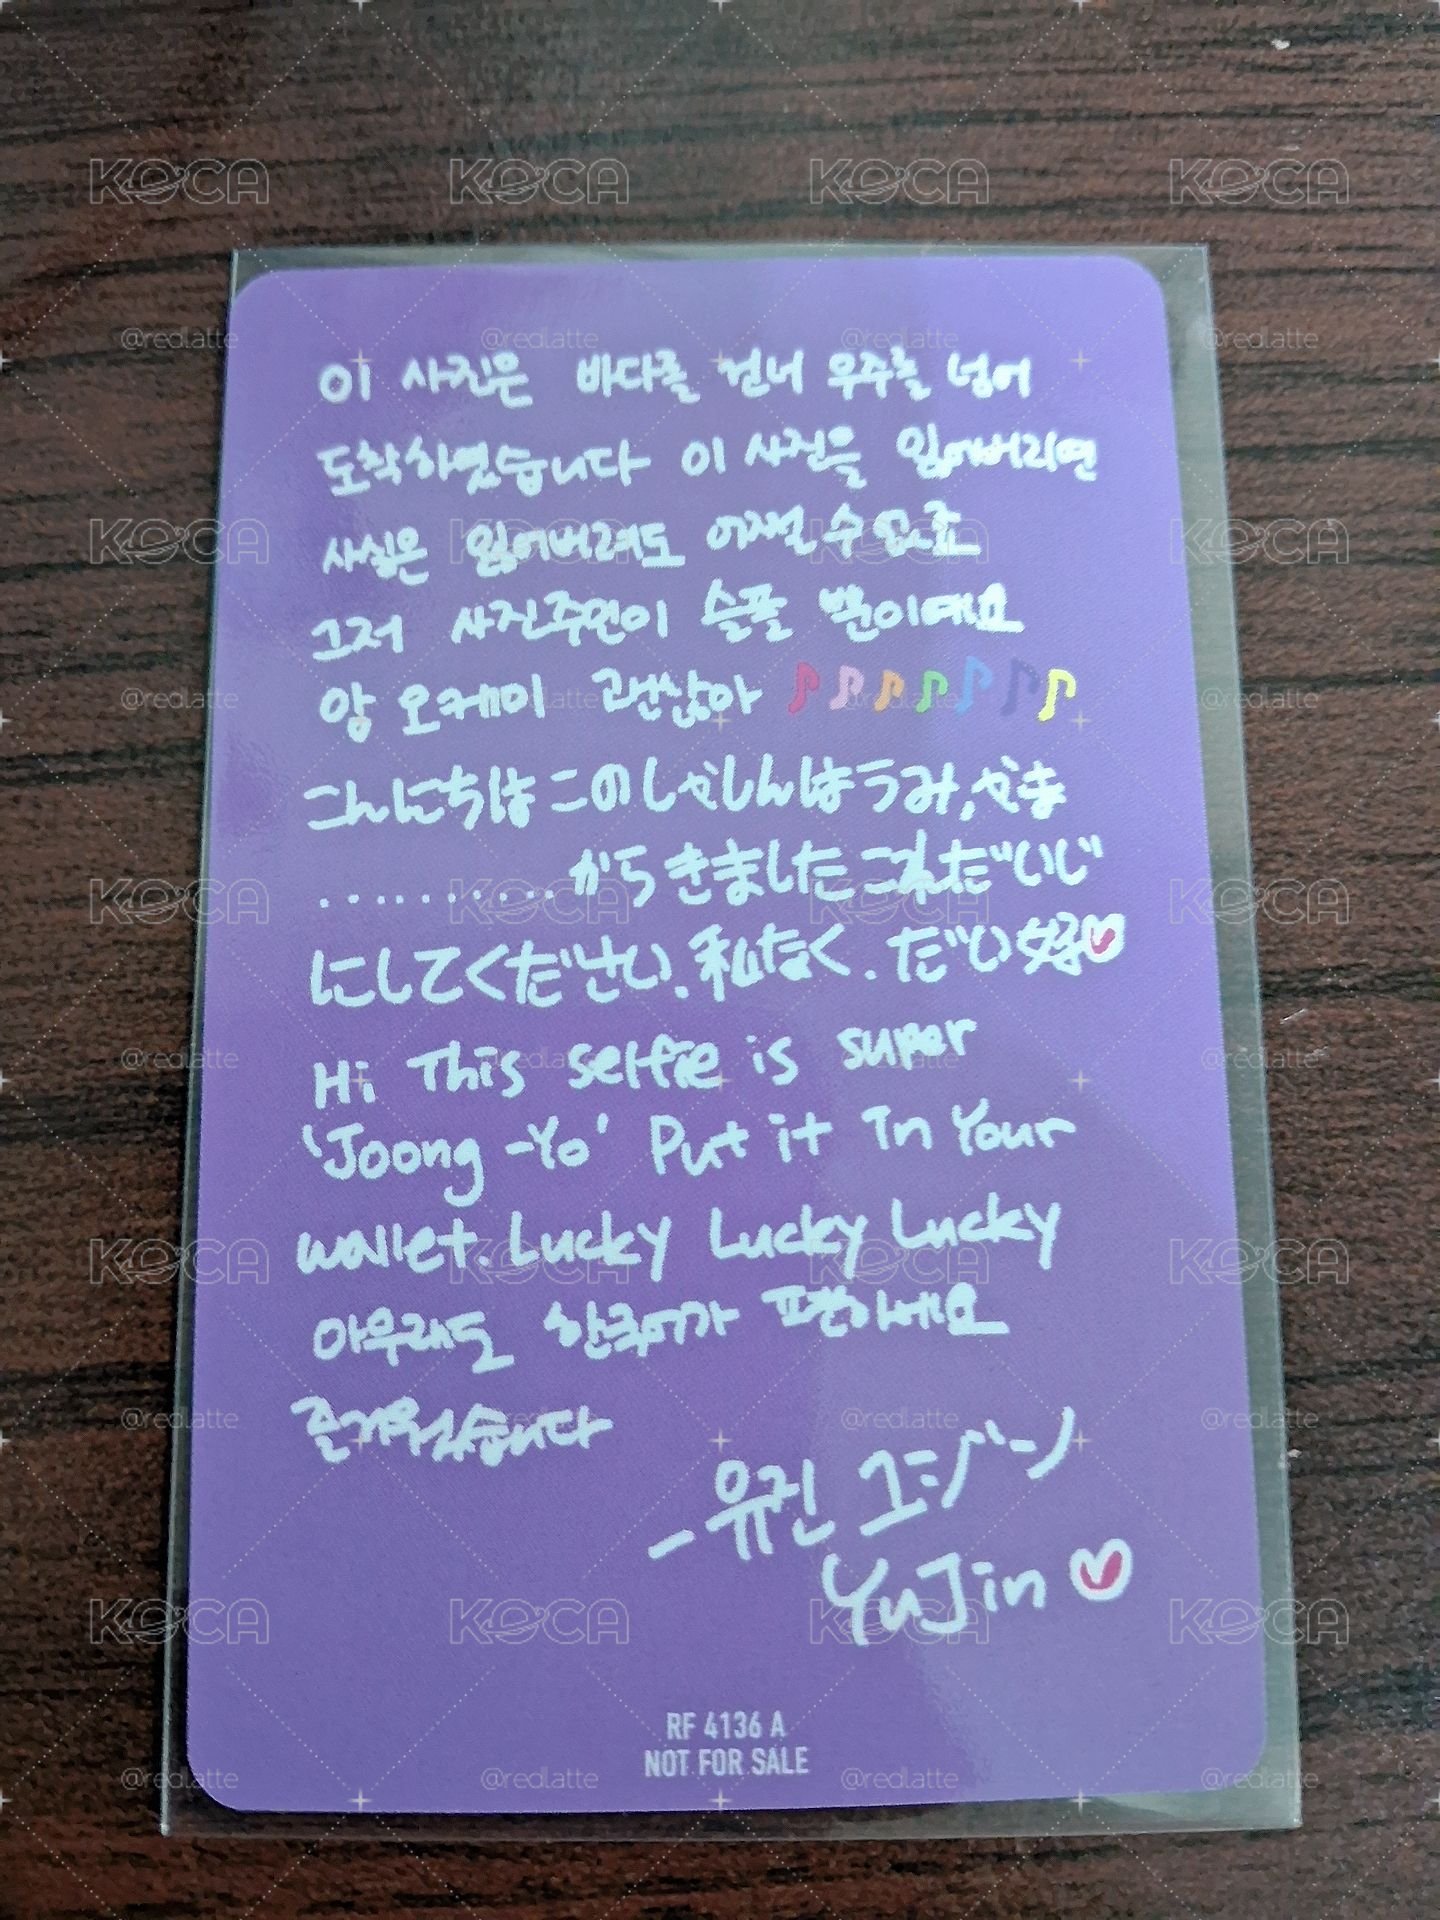 이 사진은 바다를 건너 우주를 넘어
도착하였습니다 이 사진을 잃어버리면
사실은 잃어버려도 어쩔 수 없죠
그저 사진주인이 슬플 뿐이에요
앙 오케이 괜찮아 🎵🎵🎵🎵🎵🎵🎵
こんにちは このしゃしんは うみ,やま
........... から きました これ だいじ
にしてください. 私たく. だい好♡
Hi This selfie is super
'Joong -Yo' Put it in Your
wallet. Lucky Lucky Lucky
아무래도 한국어가 편하네요
즐거웠습니다
- 유진 ユジーン
YuJin ♡
RF 4136 A
NOT FOR SALE
KOCA
@redlatte